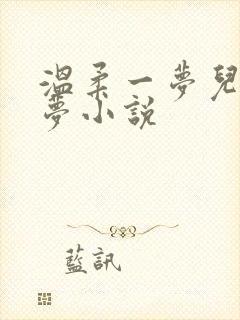 溫柔一夢兒
夢小說
藍訊